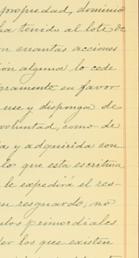 propiedad, dominio
ha tenido al lote de
on cuantas acciones
ión alguna lo cede
gramente en favor
use y disponga de
voluntad, como de
a y adquirida con
lo que esta escritura
le expedirá el res-
en resguardo, no
ulos primordiales
er los que existen